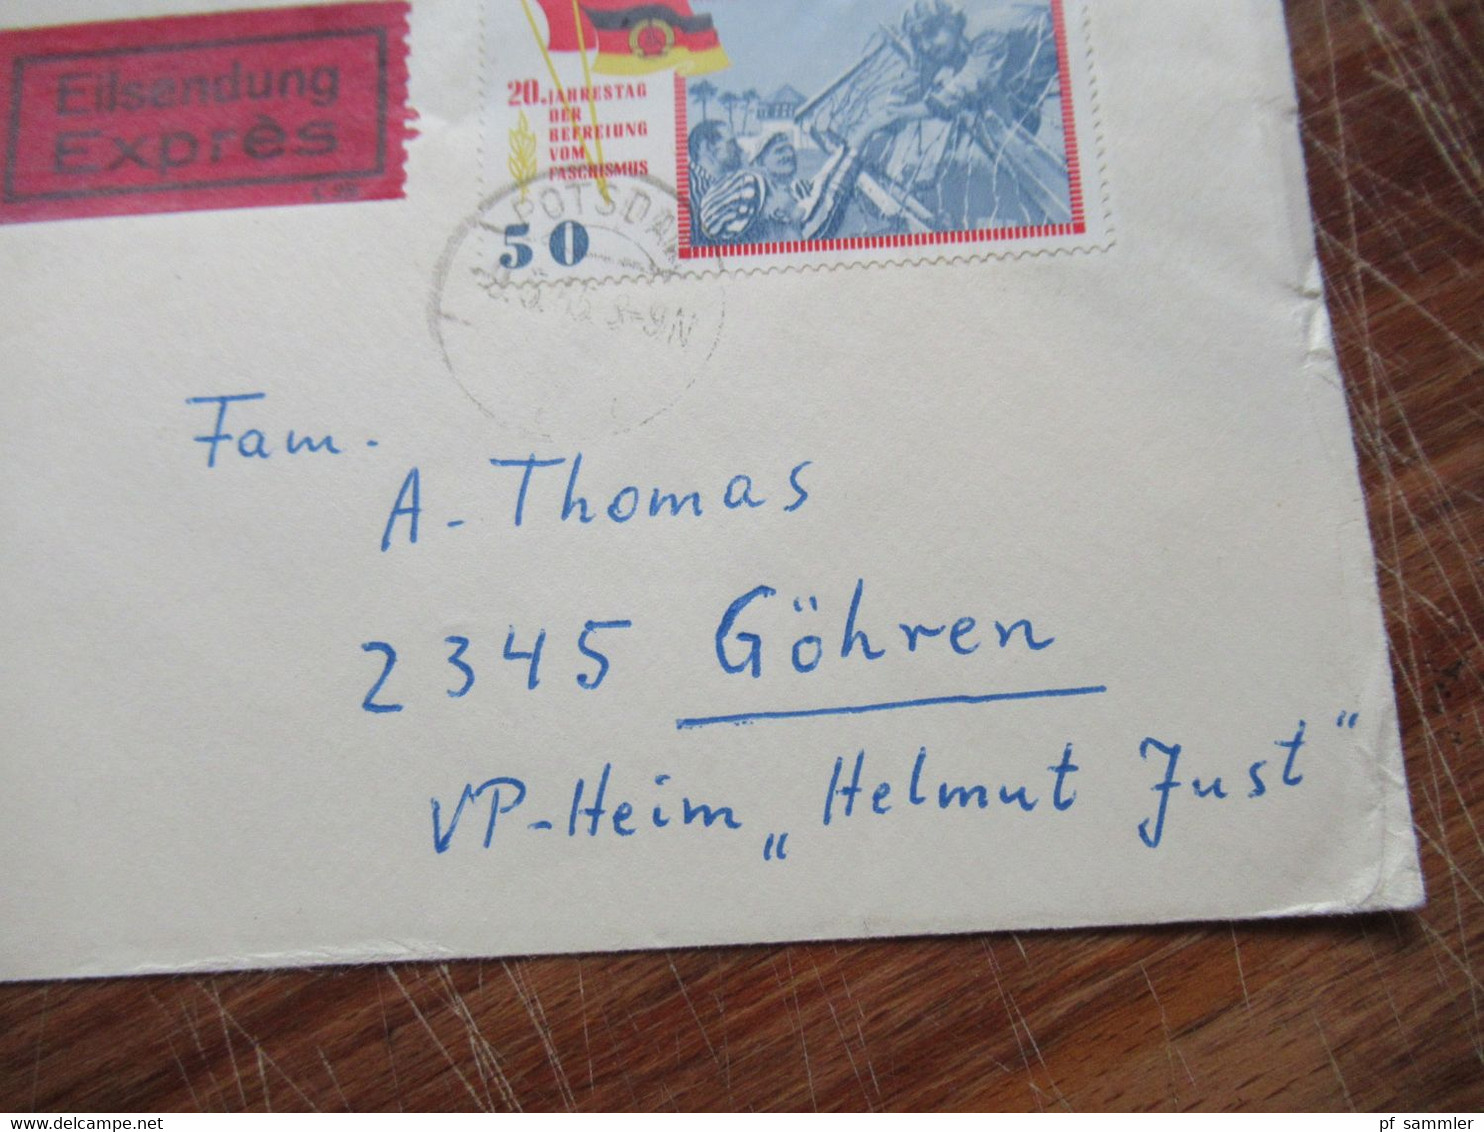 Eilsendung
Exprès
20. JAHRESTAG
DER
BEFREIUNG
VOM
FASCHISMUS
50
POTSDAM
Fam.
A. Thomas
2345 Göhren
VP-Heim „Helmut Just“
pf sammler